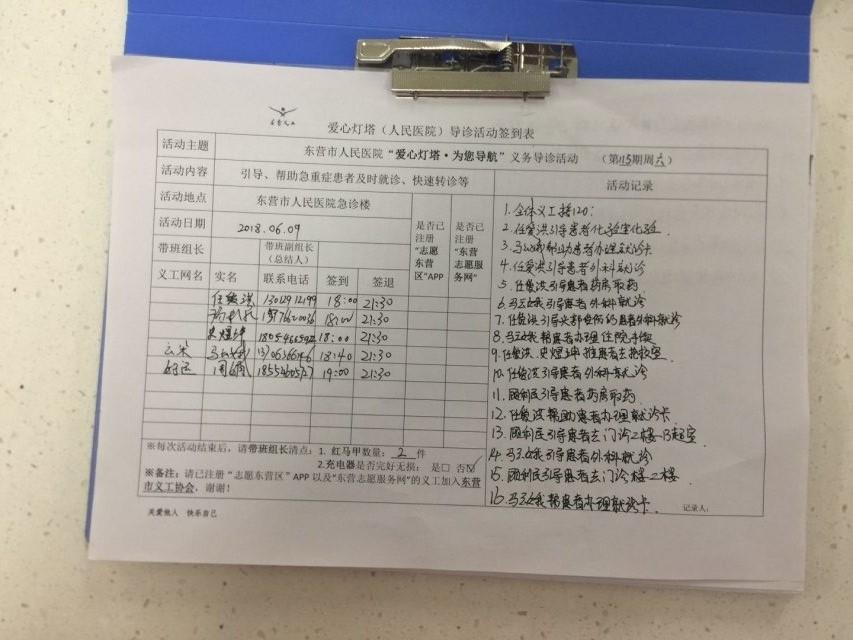 爱心灯塔（人民医院）导诊活动签到表
活动主题 东营市人民医院“爱心灯塔·为您导航”义务导诊活动 （第115期周六）
活动内容 引导、帮助急重症患者及时就诊、快速转诊等
活动记录
活动地点 东营市人民医院急诊楼
活动日期 2018.06.09
带班组长 带班副组长（总结人）
是否已注册“志愿东营区”APP
是否已注册“东营志愿服务网”
义工网名 实名 联系电话 签到 签退
18:00 21:30
18:00 21:30
18:00 21:30
18:40 21:30
19:00 21:30
1. 全体义工接120：
2. 任俊洪引导患者化验室化验
3. 帮助患者办理就诊卡
4. 任俊洪引导患者外科就诊
5. 任俊洪引导患者药房取药
6. 引导患者外科就诊
7. 任俊洪引导头部受伤的患者外科就诊
8. 帮患者办理住院手续
9. 任俊洪、史煜坤推患者去抢救室
10. 任俊洪引导患者外科就诊
11. 顾利民引导患者药房取药
12. 任俊洪帮助患者办理就诊卡
13. 顾利民引导患者去门诊2楼B超室
14. 引导患者外科就诊
15. 顾利民引导患者去门诊楼2楼
16. 帮患者办理就诊卡
记录人：
※每次活动结束后，请带班组长清点：1. 红马甲数量：2 件
2.充电器是否完好无损： 是□ 否☑
※备注：请已注册“志愿东营区”APP以及“东营志愿服务网”的义工加入东营
市义工协会，谢谢！
关爱他人 快乐自己